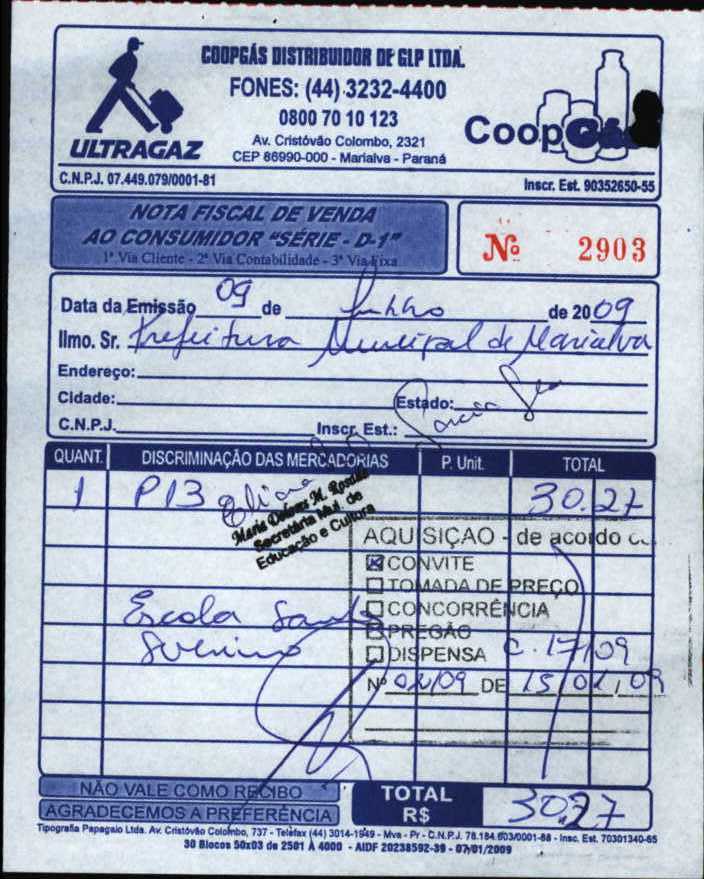 COOPGÁS DISTRIBUIDOR DE GLP LTDA.
FONES: (44) 3232-4400
0800 70 10 123
Av. Cristóvão Colombo, 2321
CEP 86990-000 - Marialva - Paraná
ULTRAGAZ
CoopGás
C.N.P.J. 07.449.079/0001-81
Inscr. Est. 90352650-55
NOTA FISCAL DE VENDA
AO CONSUMIDOR "SÉRIE - D-1"
1ª Via Cliente - 2ª Via Contabilidade - 3ª Via Fixa
Nº 2903
Data da Emissão 09 de Junho de 2009
Ilmo. Sr. Prefeitura Municipal de Marialva
Endereço:
Cidade: Estado:
C.N.P.J. Inscr. Est.:
QUANT. DISCRIMINAÇÃO DAS MERCADORIAS P. Unit. TOTAL
1 P13 30.27
Secretária Mul. de
Educação e Cultura
AQUISIÇÃO - de acordo
CONVITE
TOMADA DE PREÇO
CONCORRÊNCIA
PREGÃO
DISPENSA C. 17/09
Nº DE 15/01/09
Escola
NÃO VALE COMO RECIBO
AGRADECEMOS A PREFERÊNCIA
TOTAL
R$ 30.27
Tipografia Papagaio Ltda. Av. Cristóvão Colombo, 737 - Telefax (44) 3014-1949 - Mva - Pr - C.N.P.J. 78.184.603/0001-88 - Insc. Est. 70301340-65
30 Blocos 50x03 de 2501 À 4000 - AIDF 20238592-39 - 07/01/2009